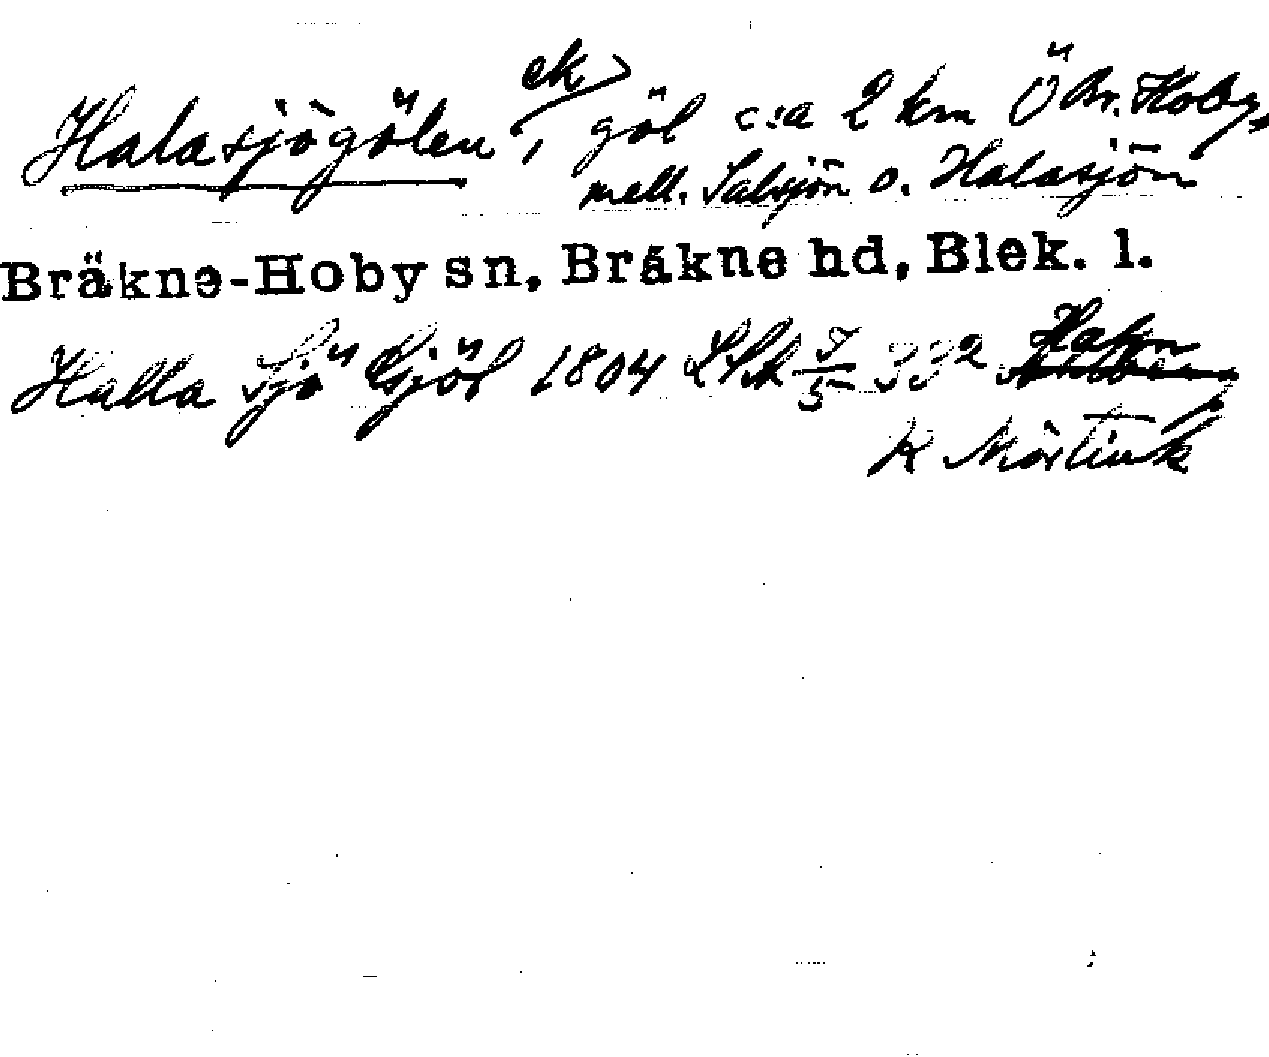 Halasjögölen, göl c:a 2 km Ö Br. Hoby,
ek
mell. Salsjön o. Halasjön
Bräkne-Hoby sn, Bräkne hd, Blek. l.
Halla Sjö Gjöl 1804 LSA 332
K Mörtink